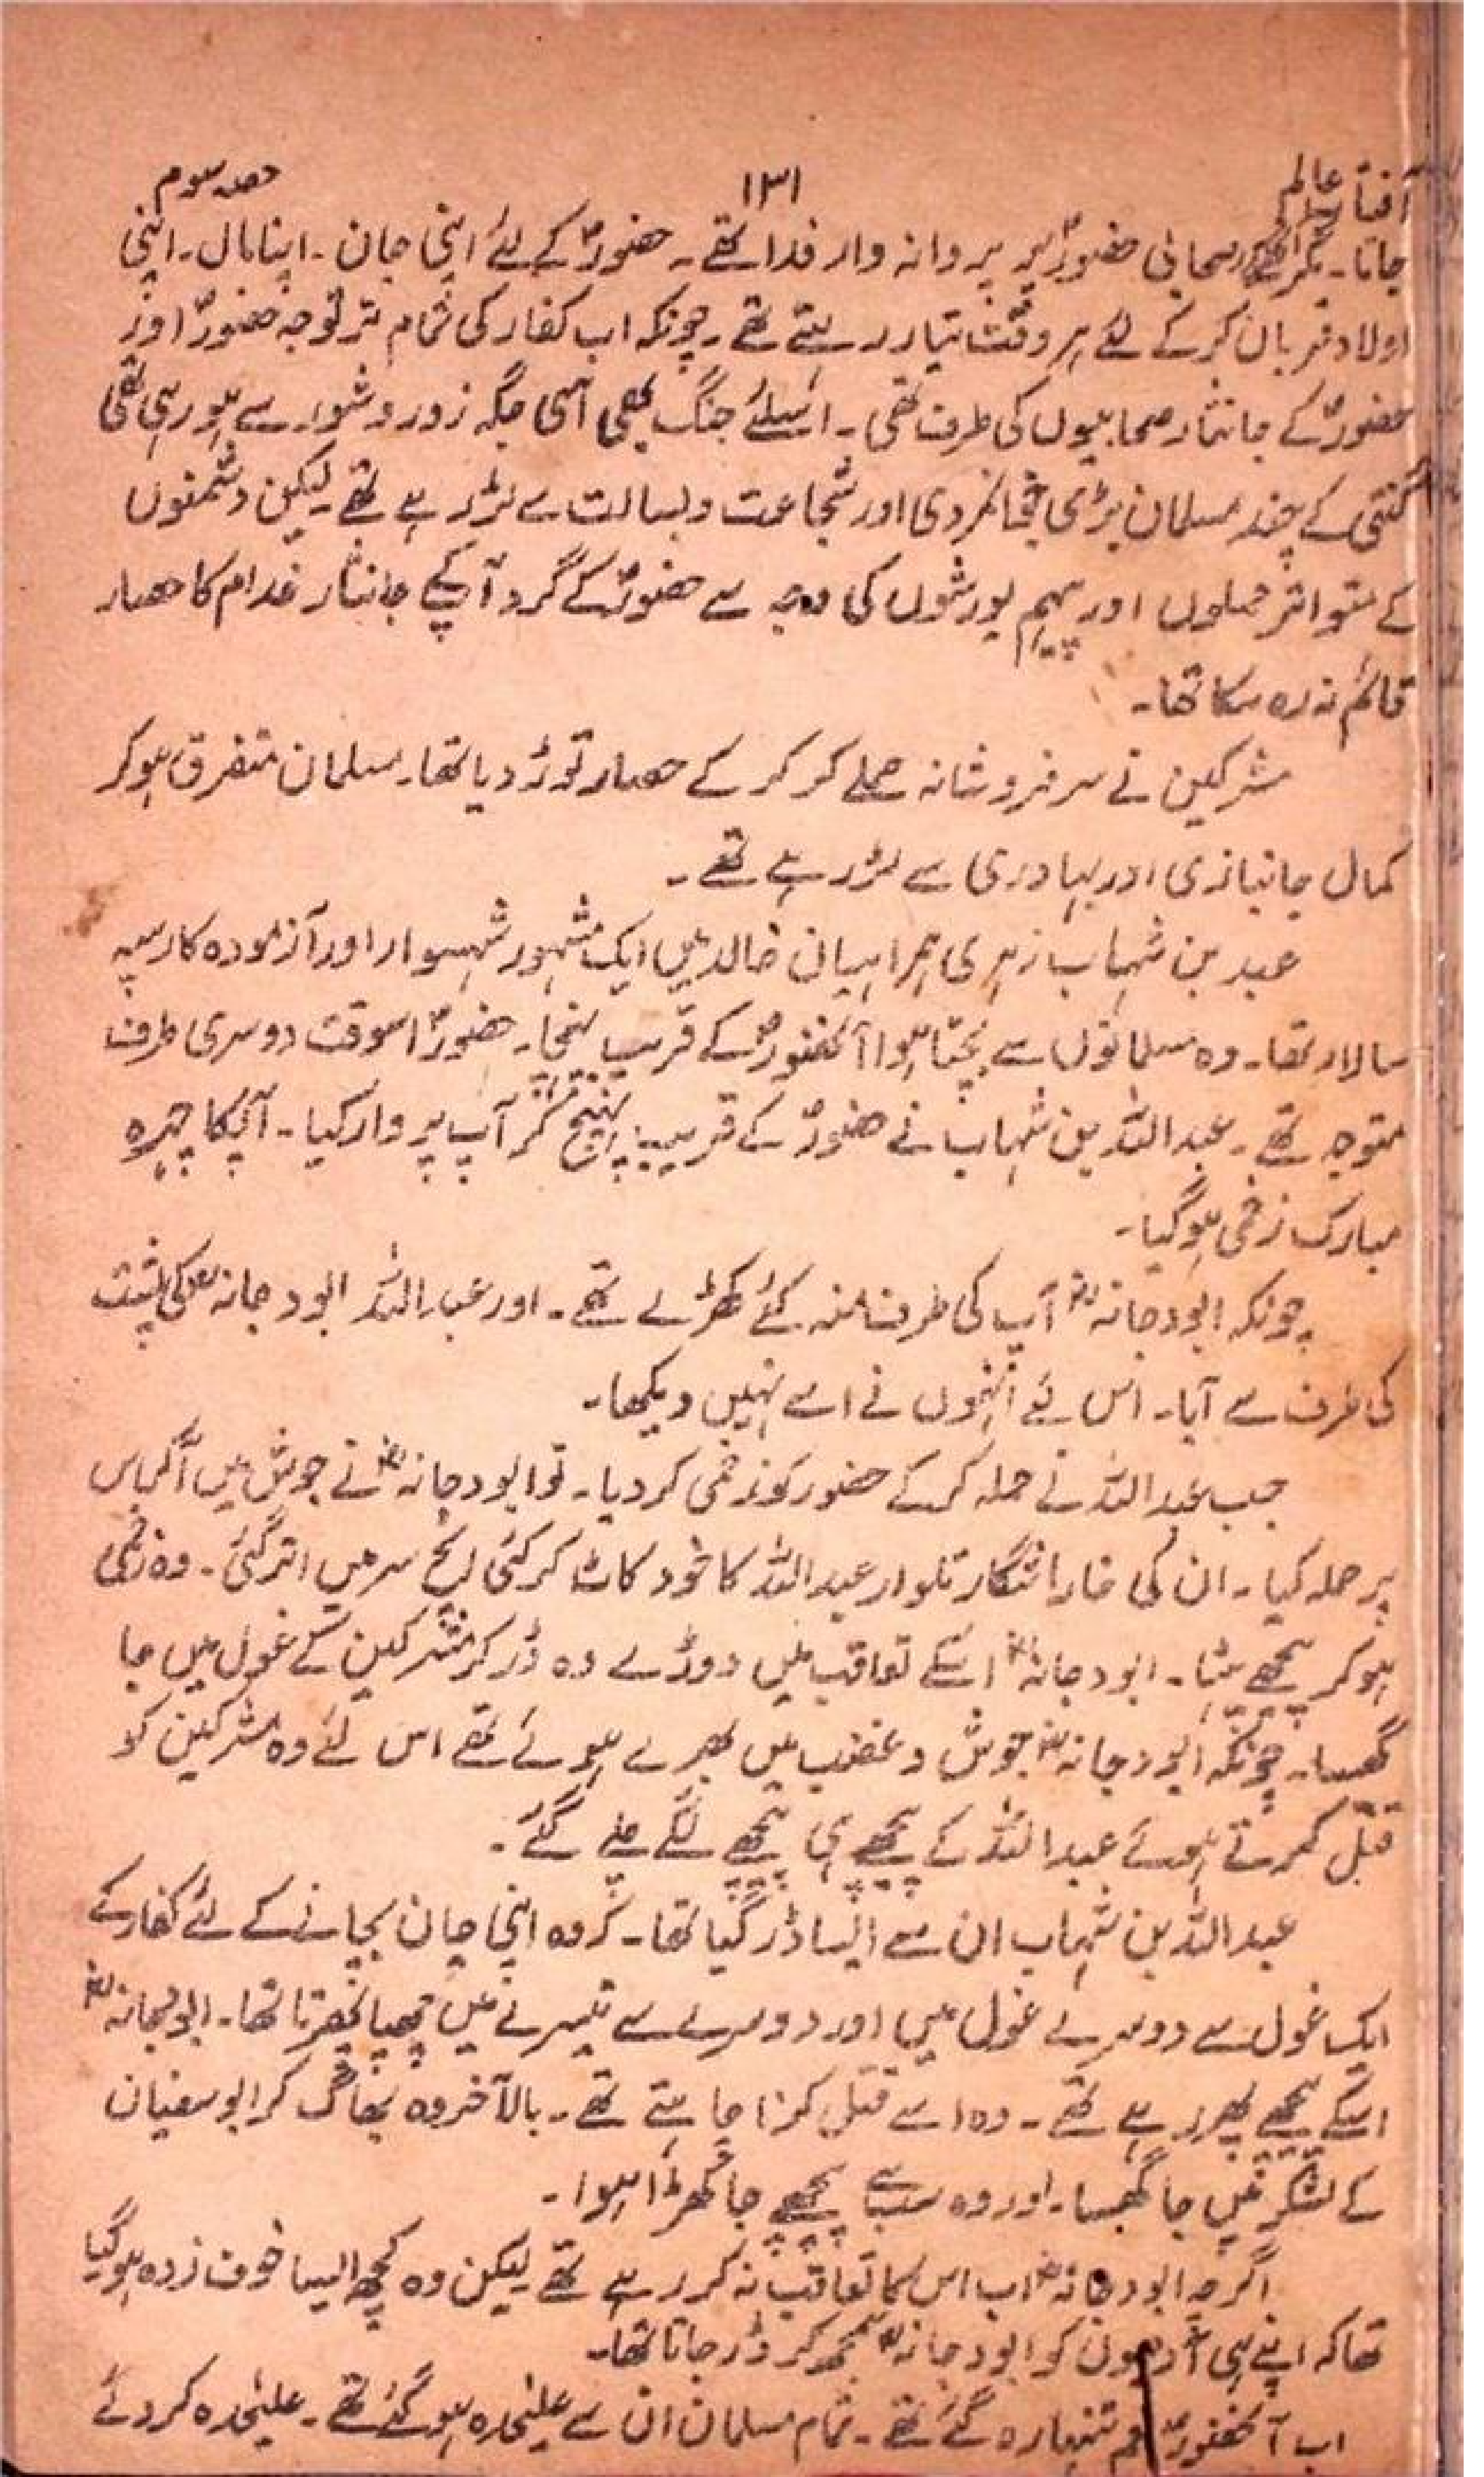 آفتاب عالم ۱۳۱ حصہ سوم
جاتا۔ مگر صحابی حضورؐ پر پروانہ وار فدا تھے۔ حضورؐ کے لئے اپنی جان۔ اپنا مال۔ اپنی
اولاد قربان کرنے کے لئے ہر وقت تیار رہتے تھے۔ چونکہ اب کفار کی تمام تر توجہ حضورؐ اور
حضورؐ کے جانثار صحابیوں کی طرف تھی۔ اسلئے جنگ بھی اسی جگہ زور و شور سے ہو رہی تھی
گنتی کے چند مسلمان بڑی پامردی اور شجاعت و بسالت سے لڑ رہے تھے۔ لیکن دشمنوں
کے متواتر حملوں اور پیہم یورشوں کی وجہ سے حضورؐ کے گرد آپکے جانثار خدام کا حصار
قائم نہ رہ سکا تھا۔
مشرکین نے سرفروشانہ حملے کر کر کے حصار توڑ دیا تھا۔ مسلمان متفرق ہو کر
کمال جانبازی اور بہادری سے لڑ رہے تھے۔
عبد بن شہاب زہری ہمراہیان خالد میں ایک مشہور شہسوار اور آزمودہ کار سپہ
سالار تھا۔ وہ مسلمانوں سے بچتا ہوا آنحضورؐ کے قریب پہنچا۔ حضورؐ اسوقت دوسری طرف
متوجہ تھے۔ عبداللہ بن شہاب نے حضورؐ کے قریب پہنچ کر آپ پر وار کیا۔ آپکا چہرہ
مبارک زخمی ہو گیا۔
چونکہ ابودجانہؓ آپ کی طرف منہ کئے کھڑے تھے۔ اور عبداللہ ابودجانہؓ کی پشت
کی طرف سے آیا۔ اس لئے انہوں نے اسے نہیں دیکھا۔
جب عبداللہ نے حملہ کر کے حضور کو زخمی کر دیا۔ تو ابودجانہؓ نے جوش میں آ کر اس
پر حملہ کیا۔ ان کی خارا شگار تلوار عبداللہ کا خود کاٹ کر کئی انچ سر میں اتر گئی۔ وہ زخمی
ہو کر پیچھے ہٹا۔ ابودجانہؓ اسکے تعاقب میں دوڑے وہ ڈر کر مشرکین کے غول میں جا
گھسا۔ چونکہ ابودجانہؓ جوش و غضب میں بھرے ہوئے تھے اس لئے وہ مشرکین کو
قتل کرتے ہوئے عبداللہ کے پیچھے ہی پیچھے لگے چلے گئے۔
عبداللہ بن شہاب ان سے ایسا ڈر گیا تھا۔ کہ وہ اپنی جان بچانے کے لئے کفار کے
ایک غول سے دوسرے غول میں اور دوسرے سے تیسرے میں چھپا پھرتا تھا۔ ابودجانہؓ
اسکے پیچھے پھر رہے تھے۔ وہ اسے قتل کرنا چاہتے تھے۔ بالآخر وہ بھاگ کر ابوسفیان
کے لشکر میں جا گھسا۔ اور وہ سب سے پیچھے جا کھڑا ہوا۔
اگرچہ ابودجانہؓ اب اس کا تعاقب نہ کر رہے تھے لیکن وہ کچھ ایسا خوف زدہ ہو گیا
تھا کہ اپنے ہی آدمیوں کو ابودجانہؓ سمجھ کر ڈر جاتا تھا۔
اب آنحضورؐ تنہا رہ گئے تھے۔ تمام مسلمان ان سے علیحدہ ہو گئے تھے۔ علیحدہ کر دئے